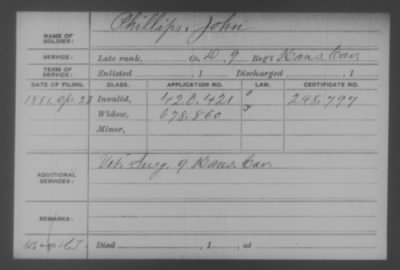 NAME OF SOLDIER: Phillips, John
SERVICE: Late rank, Co. D, 9 Reg't Kans. Cav.
TERM OF SERVICE: Enlisted , 1 Discharged , 1
DATE OF FILING. CLASS. APPLICATION NO. LAW. CERTIFICATE NO.
1881, Apr. 23 Invalid, 420,421 298,797
Widow, 678,860
Minor,
ADDITIONAL SERVICES: Vet. Surg. 9 Kans. Cav.
REMARKS:
Died , 1 , at